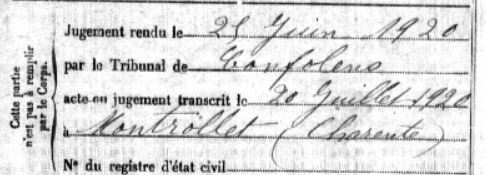 Cette partie
n'est pas à remplir
par le Corps.
Jugement rendu le 25 Juin 1920
par le Tribunal de Confolens
acte ou jugement transcrit le 20 Juillet 1920
à Montrollet (Charente)
N° du registre d'état civil